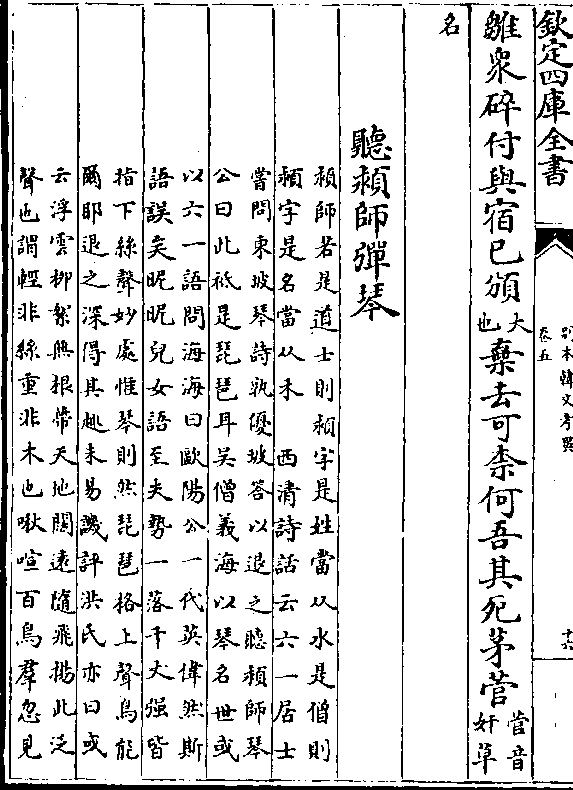 欽定四庫全書
別本韓文考異
卷五
十六
雛衆碎付與宿已頒大也棄去可柰何吾其死茅菅菅音姧草
名
聽頴師彈琴
頴師若是道士則頴字是姓當从水是僧則
頴字是名當从禾　西清詩話云六一居士
嘗問東坡琴詩孰優坡答以退之聽頴師琴
公曰此祇是琵琶耳吴僧義海以琴名世或
以六一語問海海曰歐陽公一代英偉然斯
語誤矣昵昵兒女語至夫勢一落千丈强皆
指下絲聲妙處惟琴則然琵琶格上聲烏能
爾耶退之深得其趣未易譏評洪氏亦曰或
云浮雲柳絮無根帶天地闊遠隨飛揚此泛
聲也謂輕非絲重非木也啾喧百鳥羣忽見